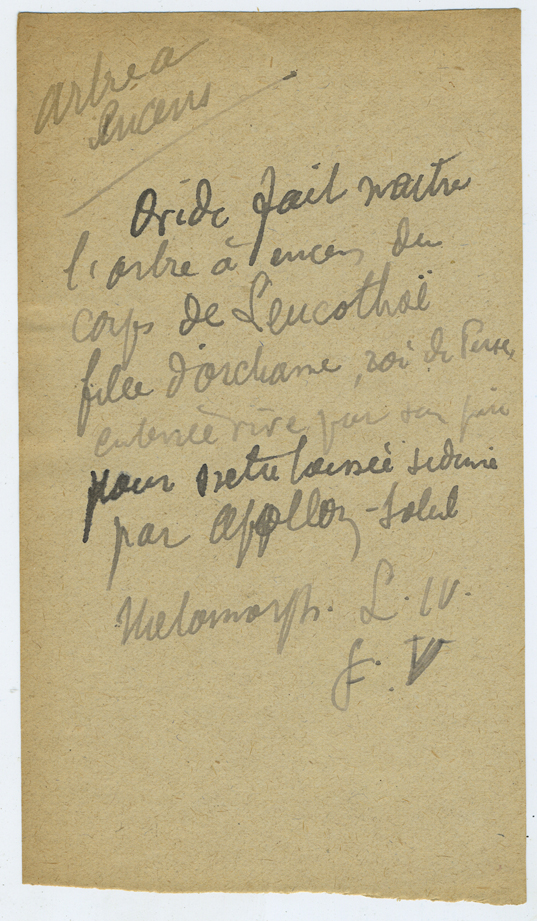 Arbre a
encens
Ovide fait naitre
l'arbre à encens du
corps de Leucothoë
fille d'orchame, roi de Perse,
enterrée vive par son père
pour s'etre laissée séduire
par Apollon-Soleil
Metamorph. L. IV.
f. V